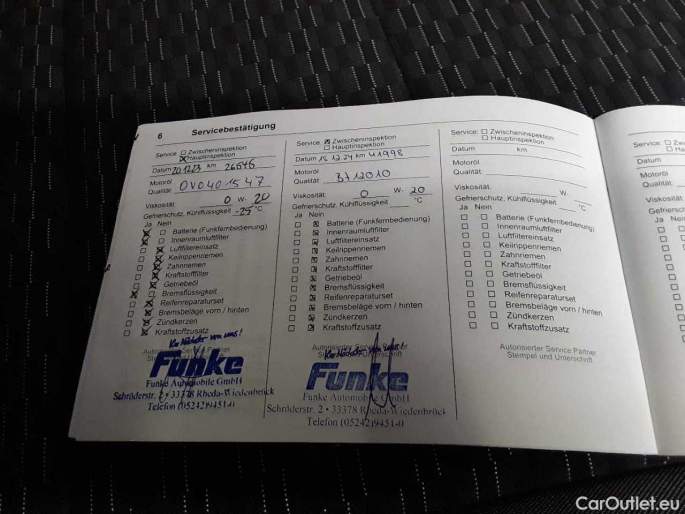 6 Servicebestätigung
Service: ☐ Zwischeninspektion
☒ Hauptinspektion
Datum 20.12.23 km 26646
Motoröl
Qualität OV0401547
Viskosität: 0 W- 20
Gefrierschutz, Kühlflüssigkeit -25 °C
Ja Nein
☒ ☐ Batterie (Funkfernbedienung)
☒ ☐ Innenraumluftfilter
☐ ☒ Luftfiltereinsatz
☐ ☒ Keilrippenriemen
☐ ☒ Zahnriemen
☐ ☒ Kraftstofffilter
☐ ☒ Getriebeöl
☒ ☐ Bremsflüssigkeit
☐ ☒ Reifenreparaturset
☐ ☒ Bremsbeläge vorn / hinten
☐ ☒ Zündkerzen
☐ ☒ Kraftstoffzusatz
Autorisierter Service Partner
Funke
Funke Automobile GmbH
Schröderstr. 2 • 33378 Rheda-Wiedenbrück
Telefon (05242)9451-0
Service: ☒ Zwischeninspektion
☐ Hauptinspektion
Datum 12 24 km 41998
Motoröl
Qualität
Viskosität: 0 W- 20
Gefrierschutz, Kühlflüssigkeit °C
Ja Nein
Batterie (Funkfernbedienung)
Innenraumluftfilter
Luftfiltereinsatz
Keilrippenriemen
Zahnriemen
Kraftstofffilter
Getriebeöl
Bremsflüssigkeit
Reifenreparaturset
Bremsbeläge vorn / hinten
Zündkerzen
Kraftstoffzusatz
Autorisierter Service Partner
Funke
Funke Automobile GmbH
Schröderstr. 2 • 33378 Rheda-Wiedenbrück
Telefon (05242)9451-0
Service: ☐ Zwischeninspektion
☐ Hauptinspektion
Datum km
Motoröl
Qualität
Viskosität: W-
Gefrierschutz, Kühlflüssigkeit °C
Ja Nein
☐ ☐ Batterie (Funkfernbedienung)
☐ ☐ Innenraumluftfilter
☐ ☐ Luftfiltereinsatz
☐ ☐ Keilrippenriemen
☐ ☐ Zahnriemen
☐ ☐ Kraftstofffilter
☐ ☐ Getriebeöl
☐ ☐ Bremsflüssigkeit
☐ ☐ Reifenreparaturset
☐ ☐ Bremsbeläge vorn / hinten
☐ ☐ Zündkerzen
☐ ☐ Kraftstoffzusatz
Autorisierter Service Partner
Stempel und Unterschrift
Service: ☐
Datum
Motoröl
Qualität
Viskosität:
Ja Nein
CarOutlet.eu